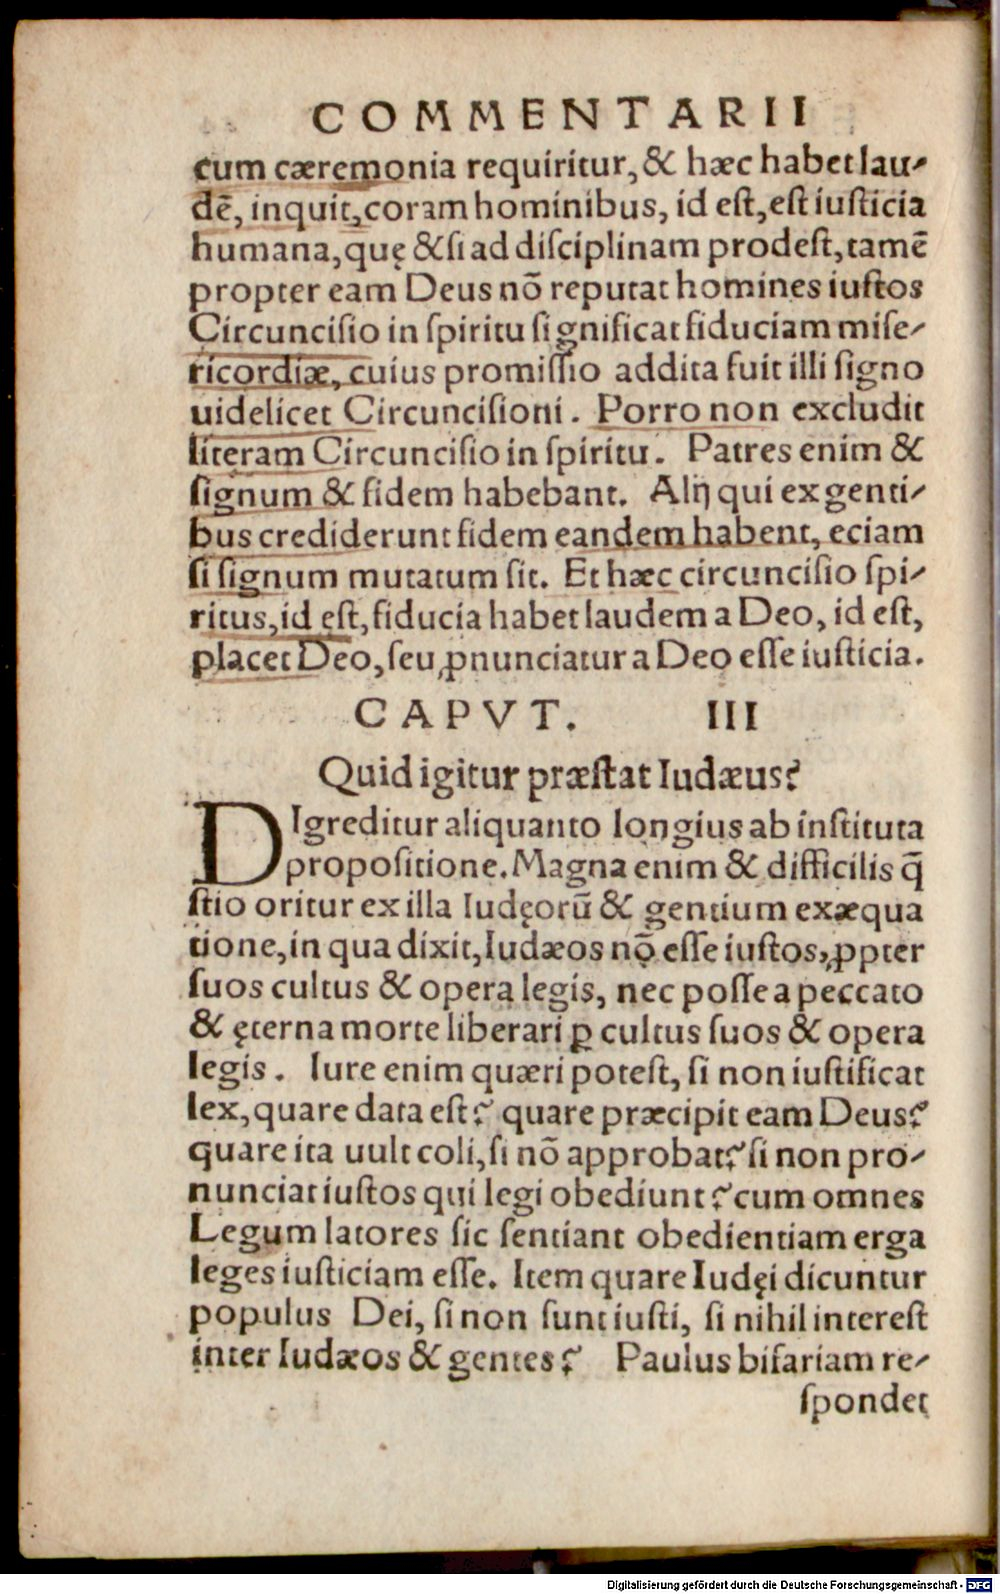 COMMENTARII
cum cæremonia requiritur, & hæc habet lau-
dē, inquit, coram hominibus, id eſt, eſt iuſticia
humana, quę & ſi ad diſciplinam prodeſt, tamē
propter eam Deus nō reputat homines iuſtos
Circunciſio in ſpiritu ſignificat fiduciam miſe-
ricordiæ, cuius promiſſio addita fuit illi ſigno
uidelicet Circunciſioni. Porro non excludit
literam Circunciſio in ſpiritu. Patres enim &
ſignum & fidem habebant. Alij qui ex genti-
bus crediderunt fidem eandem habent, eciam
ſi ſignum mutatum ſit. Et hæc circunciſio ſpi-
ritus, id eſt, fiducia habet laudem a Deo, id eſt,
placet Deo, ſeu ꝓnunciatur a Deo eſſe iuſticia.
CAPVT. III
Quid igitur præſtat Iudæus?
DIgreditur aliquanto longius ab inſtituta
propoſitione. Magna enim & difficilis q̄
ſtio oritur ex illa Iudęorū & gentium exæqua
tione, in qua dixit, Iudæos nō eſſe iuſtos, ꝓpter
ſuos cultus & opera legis, nec poſſe a peccato
& ęterna morte liberari ꝑ cultus ſuos & opera
legis. Iure enim quæri poteſt, ſi non iuſtificat
lex, quare data eſt? quare præcipit eam Deus?
quare ita uult coli, ſi nō approbat? ſi non pro-
nunciat iuſtos qui legi obediunt? cum omnes
Legum latores ſic ſentiant obedientiam erga
leges iuſticiam eſſe. Item quare Iudęi dicuntur
populus Dei, ſi non ſunt iuſti, ſi nihil intereſt
inter Iudæos & gentes? Paulus bifariam re-
ſpondet
Digitalisierung gefördert durch die Deutsche Forschungsgemeinschaft - DFG